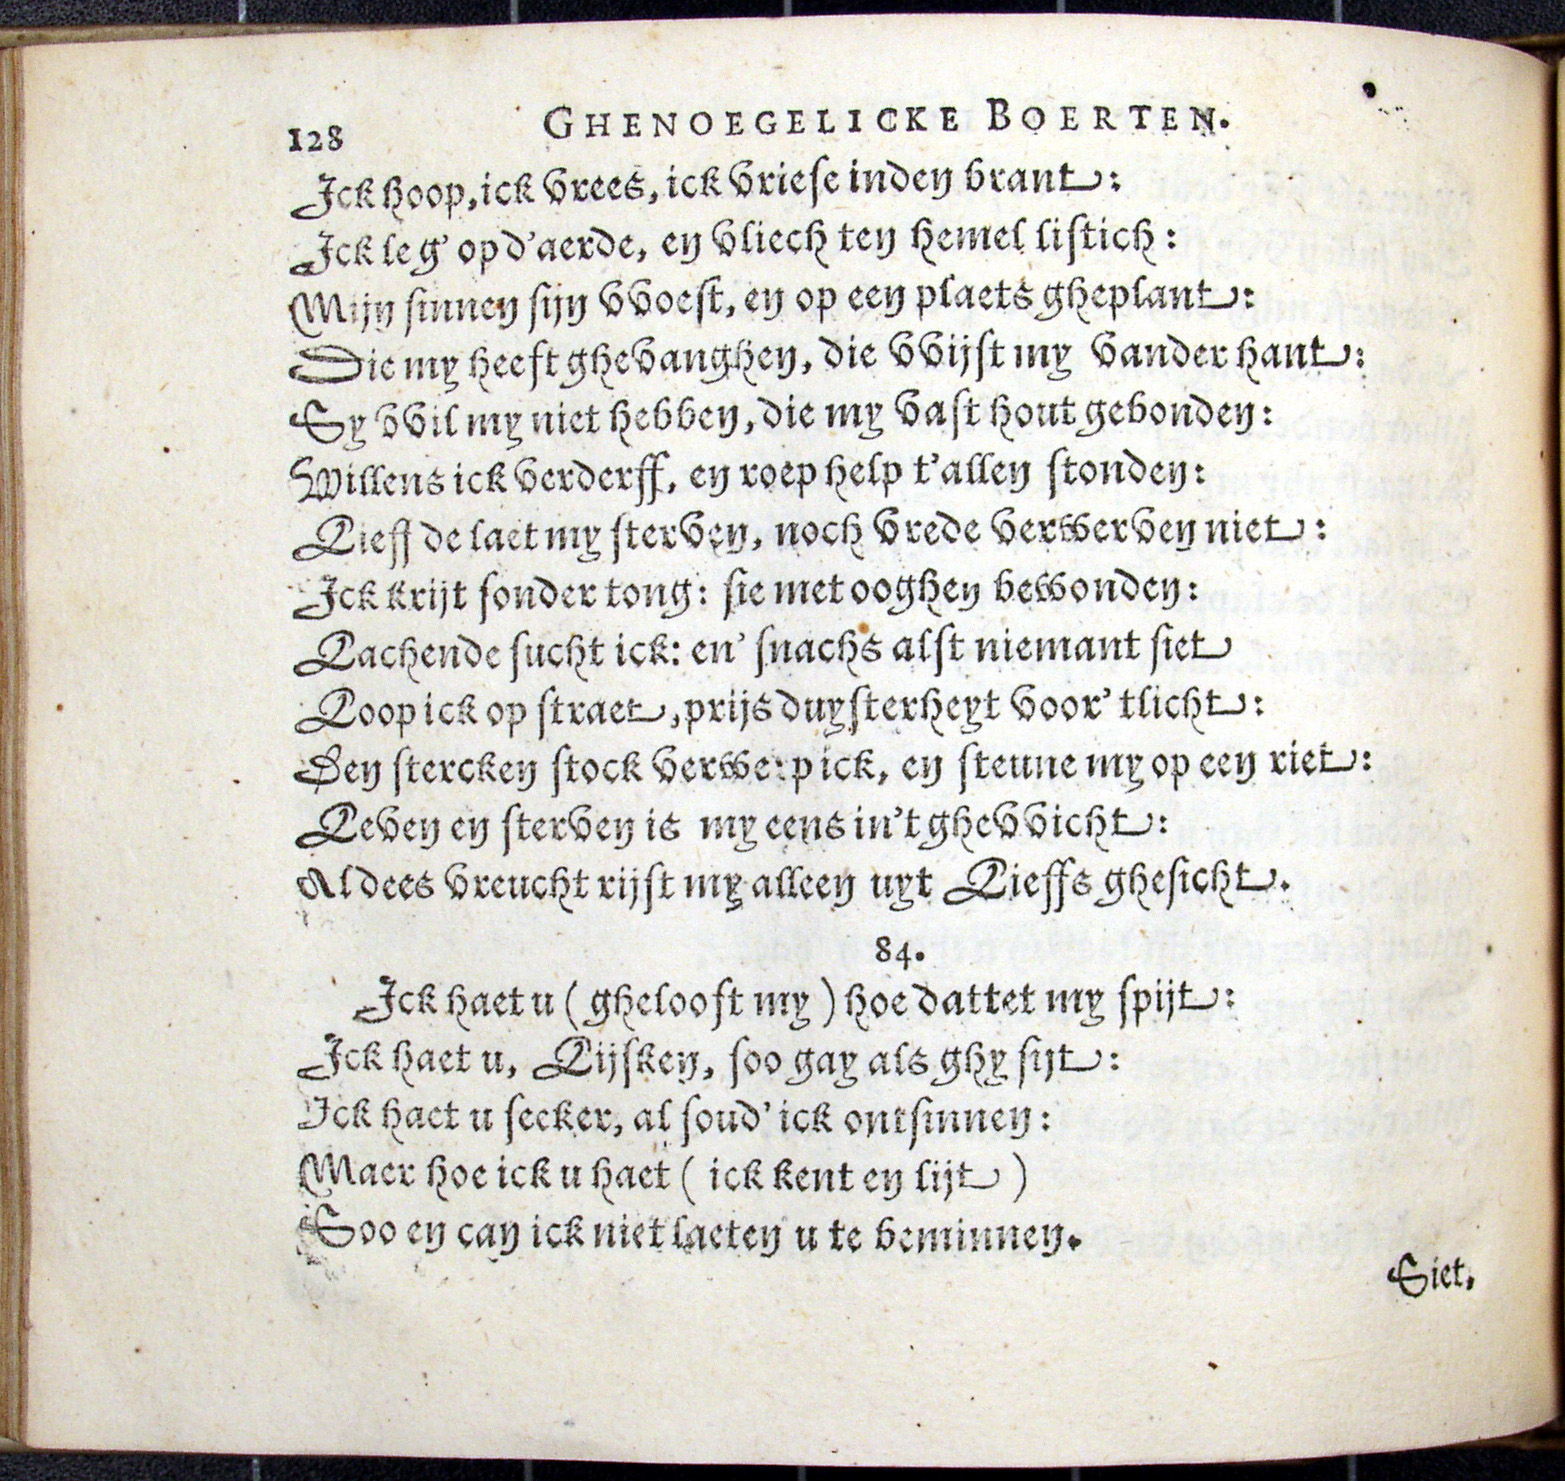 128 GHENOEGELICKE BOERTEN.
Ick hoop, ick vrees, ick vriese inden brant:
Ick leg' op d'aerde, en vliech ten hemel listich:
Mijn sinnen sijn vvoest, en op een plaets gheplant:
Die my heeft ghevanghen, die vvijst my vander hant:
Sy vvil my niet hebben, die my vast hout gebonden:
Willens ick verderff, en roep help t'allen stonden:
Lieff de laet my sterven, noch vrede verwerven niet:
Ick krijt sonder tong: sie met ooghen bewonden:
Lachende sucht ick: en' snachs alst niemant siet
Loop ick op straet, prijs duysterheyt voor' tlicht:
Den stercken stock verwerp ick, en steune my op een riet:
Leven en sterven is my eens in't ghevvicht:
Al dees vreucht rijst my alleen uyt Lieffs ghesicht.
84.
Ick haet u (ghelooft my) hoe dattet my spijt:
Ick haet u, Lijsken, soo gay als ghy sijt:
Ick haet u secker, al soud' ick ontsinnen:
Maer hoe ick u haet (ick kent en lijt)
Soo en can ick niet laeten u te beminnen.
Siet,